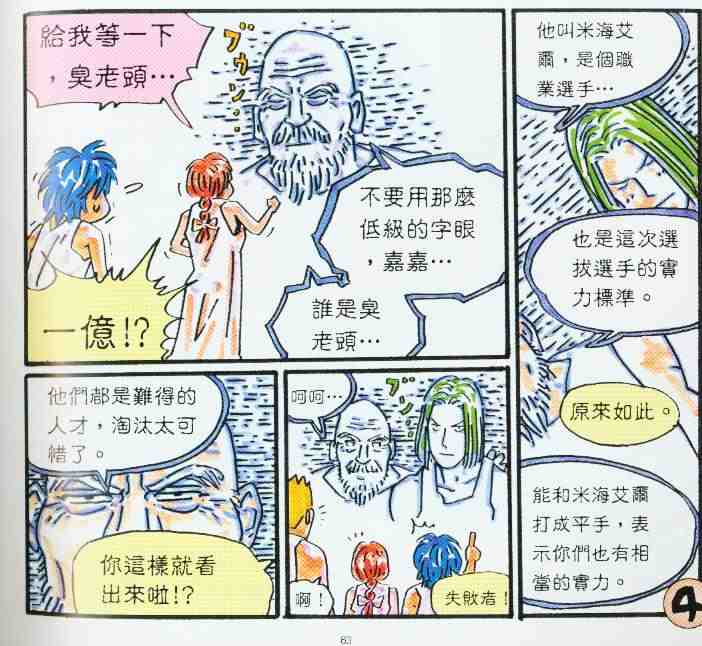 他叫米海艾
爾，是個職
業選手…
也是這次選
拔選手的實
力標準。
原來如此。
能和米海艾爾
打成平手，表
示你們也有相
當的實力。
給我等一下
，臭老頭…
ブゥン…
不要用那麼
低級的字眼
，嘉嘉…
誰是臭
老頭…
一億!?
呵呵…
ブゥン…
啊！
失敗者！
他們都是難得的
人才，淘汰太可
惜了。
你這樣就看
出來啦!?
4
63